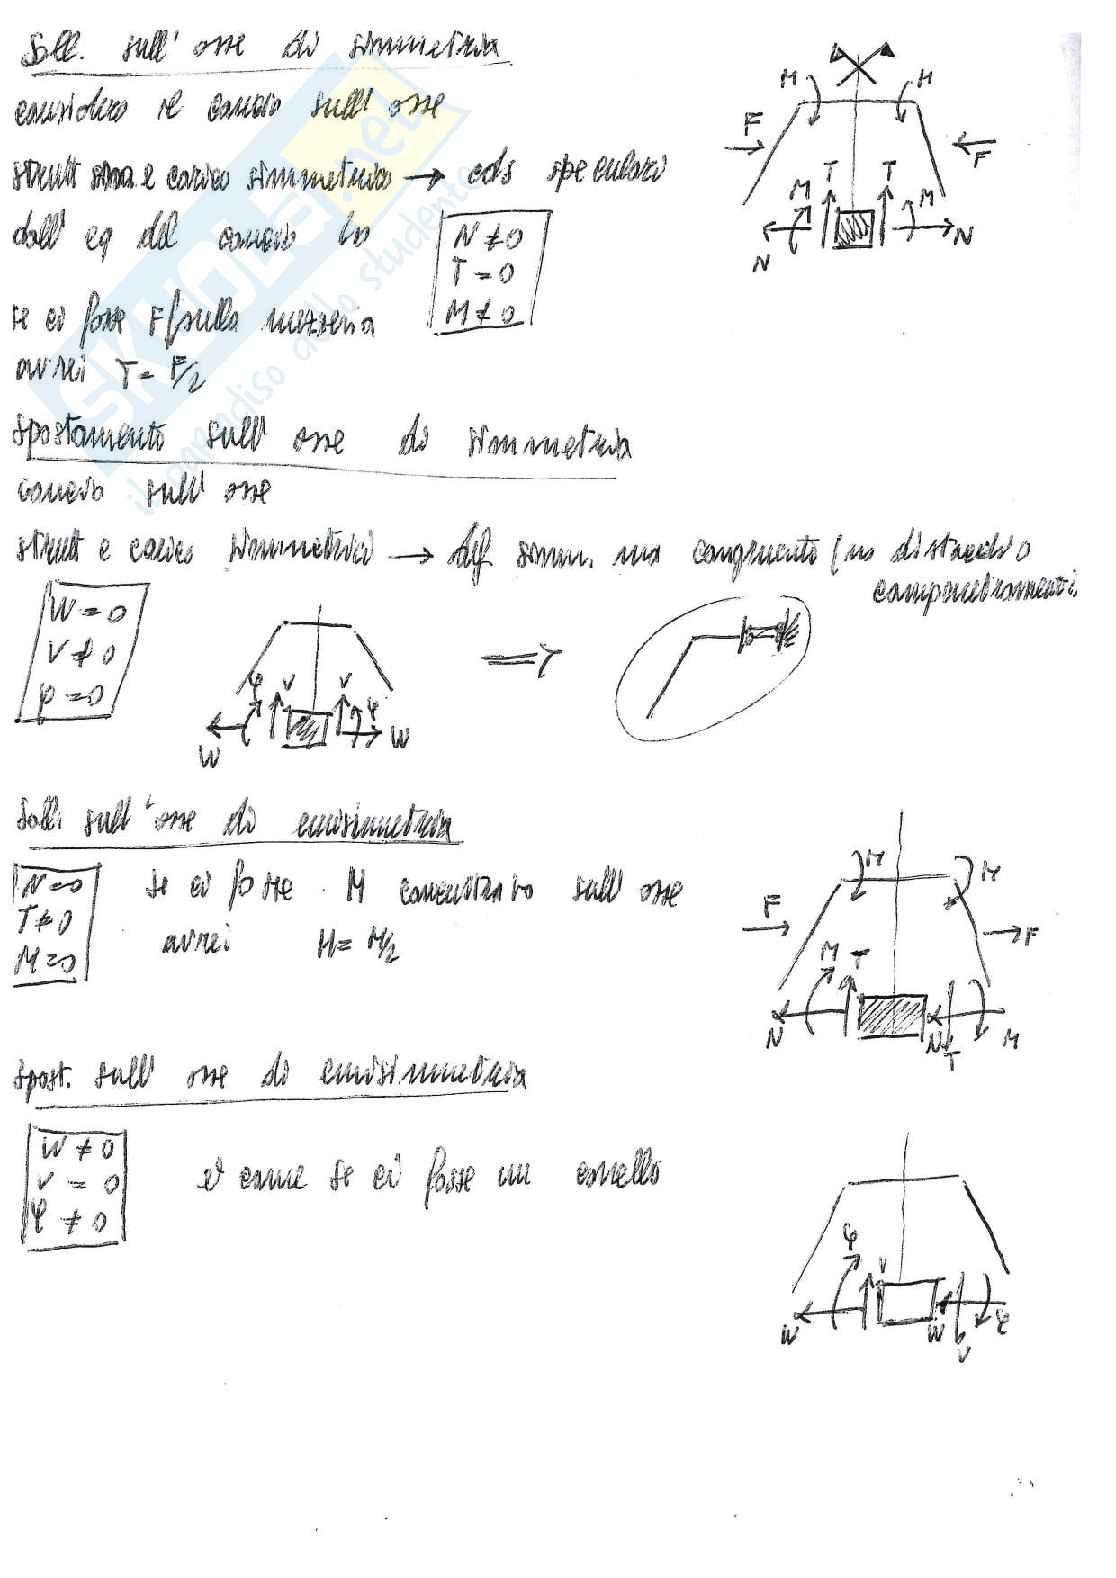 Soll. sull' asse di simmetria
considero il concio sull' asse
strutt simm. e carico simmetrico → cds speculari
dall' eq del concio ho
N ≠ 0
T = 0
M ≠ 0
se ci fosse F sulla mezzeria
avrei T = F/2
M M
F F
M T T M
N N
Spostamento sull' asse di simmetria
concio sull' asse
strutt e carico simmetrici → def simm. ma congruente (no distacchi o
compenetramenti
W = 0
V ≠ 0
φ = 0
φ V V φ
W W
Soll. sull' asse di emisimmetria
N = 0
T ≠ 0
M = 0
se ci fosse M concentrato sull' asse
avrei M = M/2
M M
F F
M T
N N T M
Spost. sull' asse di emisimmetria
W ≠ 0
V = 0
φ ≠ 0
è come se ci fosse un carrello
φ V
W W V φ
SKUOLA.net
il paradiso dello studente